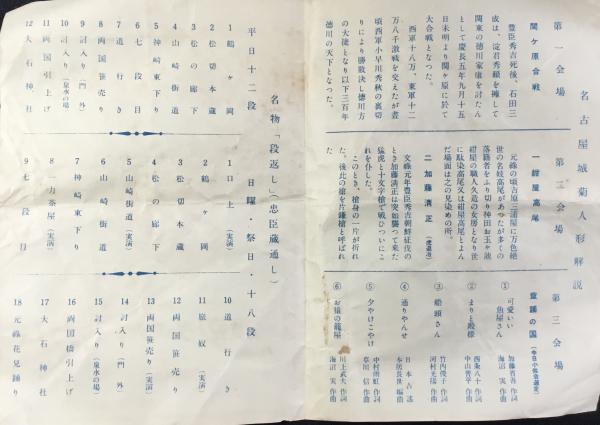 名古屋城菊人形解説
第一会場
関ケ原合戦
豊臣秀吉死後、石田三
成は、淀君秀頼を擁して
関東の徳川家康を討たん
として慶長五年九月十五
日未明より関ケ原に於て
大合戦となつた。
西軍十八万、東軍十二
万八千激戦を交えたが昼
頃西軍小早川秀秋の裏切
りにより勝敗決し徳川方
の大捷となり以下三百年
徳川の天下となつた。
第二会場
一 紺屋高尾
元禄の頃吉原三浦屋に万色絶
世の名妓高尾があつたが多くの
落籍者をふり切り神田お玉ヶ池
紺屋の職人久造の女房となり後
に駄染高尾又は紺屋高尾とよん
だ場面は之の見染めの所。
二 加藤清正 (虎退治)
文禄元年豊臣秀吉朝鮮征伐の
とき加藤清正は突如襲つて来た
猛虎と十文字槍で戦ひついにこ
れを仆した。
このとき、槍身の一片が折れ
た。後此の槍を片鎌槍と呼ばれ
第三会場
童謡の国
① 可愛いい
魚屋さん
加藤省吾 作詞
海沼 実 作曲
② まりと殿様
西条八十 作詞
中山晋平 作曲
③ 船頭さん
竹内俊子 作詞
河村光陽 作曲
④ 通りやんせ
日本古謡
本居長世 編曲
⑤ 夕やけこやけ
中村雨虹 作詞
草川 信 作曲
⑥ お猿の籠屋
川上武夫 作詞
海沼 実 作曲
名物「段返し」(忠臣蔵通し)
平日十二段
1 鶴ヶ岡
2 松切本蔵
3 松の廊下
4 山崎街道
5 神崎東下り
6 七段目
7 道行き
8 両国笹売り
9 討入り(門外)
10 討入り(泉水の場)
11 両国引上げ
12 大石神社
日曜・祭日・十八段
1 口上(実演)
2 鶴ヶ岡
3 松切本蔵
4 松の廊下
5 山崎街道(実演)
6 山崎街道
7 神崎東下り
8 一力茶屋(実演)
9 七段目
10 道行き
11 旅奴(実演)
12 両国笹売り
13 両国笹売り(実演)
14 討入り(門外)
15 討入り(泉水の場)
16 両国橋引上げ
17 大石神社
18 元禄花見踊り